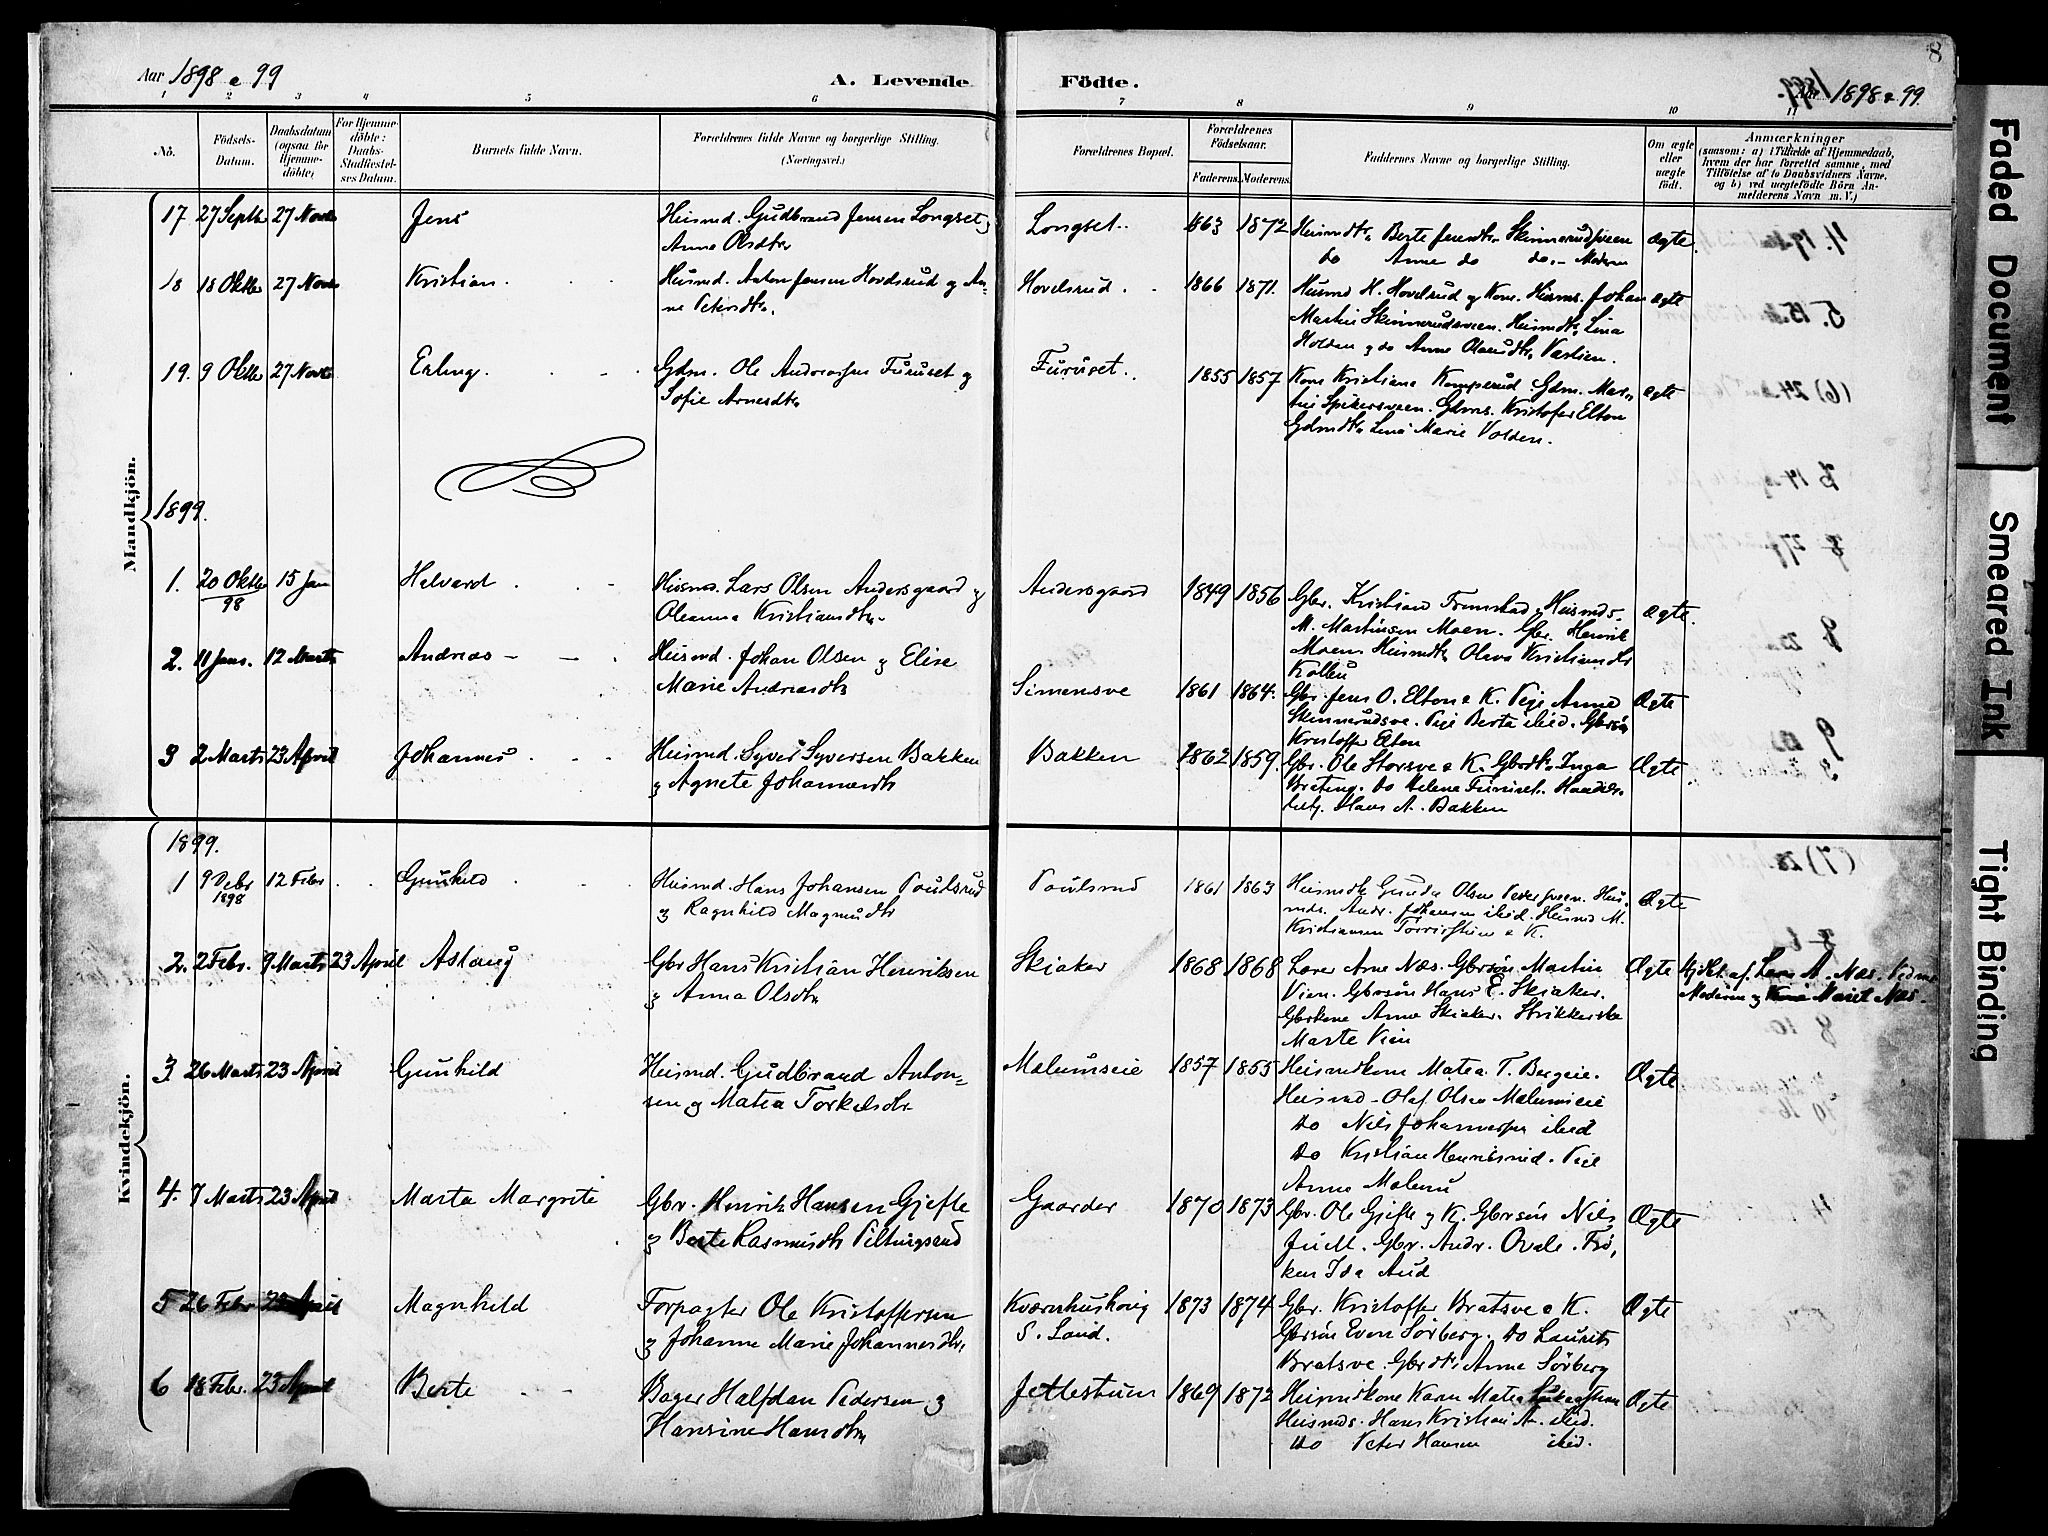 Aar 1898 & 99
A. Levende Födte.
Aar 1898 & 99.
8
1 2 3 4 5 6 7 8 9 10 11
No.
Födsels-Datum.
Daabsdatum (ogsaa for Hjemmedöbte)
For Hjemmedöbte: Daabs-Stadfæstelses Datum.
Barnets fulde Navn.
Forældrenes fulde Navne og borgerlige Stilling. (Næringsvei.)
Forældrenes Bopæl.
Forældrenes Födselsaar.
Faderens. Moderens.
Faddernes Navne og borgerlige Stilling.
Om ægte eller uægte födt.
Anmærkninger
(saasom: a) i Tilfælde af Hjemmedaab, hvem der har forrettet samme, med Tilföielse af to Daabsvidners Navne, og b) ved uægtefödte Börn Anmelderens Navn m. V.)
Mandkjön.
17 27 Septbr 27 Novbr Jens Husmd. Gudbrand Jensen Longset og Longset 1863 1872 Husmdtr. Berte Jensdtr. Skinnerudsveen Ægte
Anne Olsdtr do Anne do do.
18 18 Oktbr 27 Novbr Kristian Husmd. Anton Jensen Hovelsrud og An- Hovelsrud 1866 1871. Husmd H. Hovelsrud og Kone. Husms. Johan Ægte
ne Petersdtr. Martin Skinnerudsveen. Husmdtr. Lina
Holden og do Anne Olausdtr.
19. 9 Oktbr 27 Novbr Erling Gdm. Ole Andreassen Furuset og Furuset 1855 1857 Kone Kristiane Komperud. Gdm. Mar- Ægte
Sofie Arnesdtr. tin Spikersveen. Gdms. Kristofer Elton
Gdmdtr. Lina Marie Volden.
1899.
1. 20 Oktbr 98 15 Jan Halvard Husmd. Lars Olsen Andersgaard og Andersgaard 1849 1856 Gbr. Kristian Framstad. Husmds. Ægte.
Oleanna Kristiansdtr. M. Martinsen Moen. Gbr. Henrik
Moen Husmdtr. Oleva Kristiansdtr
Kollen
2. 11 Jan. 12 Marts Andreas Husmd. Johan Olsen og Elise Simensve 1861 1864. Gbr. Jens O. Elton & K. Pige Anne Ægte
Marie Andreasdtr Skinnerudsve. Pige Berta ibid. Gbrsön
Kristoffer Elton
3 2 Marts 23 April Johannes Husmd. Syver Syversen Bakken Bakken 1862 1859. Gbr. Ole Storsve & K. Gbrdtr. Inga Ægte
og Agnete Johannesdtr Brateng. do Helene Furuset. Handels-
betj. Hans A. Bakken
Kvindekjön.
1899.
1 9 Debr 1898 12 Febr Gunhild Husmd. Hans Johansen Poulsrud Poulsrud 1861 1863 Husmdtr Gunda Olsen Pedersveen. Hus- Ægte
og Ragnhild Magnusdtr mds. Andr. Johansen ibid. Husmd M.
Kristiansen & K.
2. 2 Febr. 9 Marts 23 April Aslaug Gbr Hans Kristian Henriksen Skiaker 1868 1868 Lærer Arne Næs. Gbrsön Martin Ægte Hjdbt. af Lærer A. Næs. Vidne
og Anna Olsdtr Vien. Gbrsön Hans E. Skiaker. Moderen og Maret Næs.
Gbrkone Anne Skiaker. Strikkerske
Marte Vien
3 26 Marts 23 April Gunhild Husmd. Gudbrand Anton- Malumseie 1857 1855 Husmdkone Matea T. Bergeie. Ægte
sen og Matea Torkelsdtr. Husmd. Olaf Olsen Malumseie
do Nils Johannessen ibid
do Kristian Henriksrud. Pige
Anne Malum
4. 7 Marts 23 April Marta Margrete Gbr. Henrik Hansen Gjefle Gaarder 1870 1873 Gbr. Ole Gjefle og K. Gbrsön Nils Ægte
og Berte Rasmusdtr Piltingsrud Juell. Gbr. Andr. Ovale. Frö-
ken Ida Aud
5 26 Febr 23 April Magnhild Forpagter Ole Kristoffersen Kværnhushovig 1873 1874 Gbr. Kristoffer Bratsve & K. Ægte
og Johanne Marie Johannesdtr. S. Land. Gbrsön Even Sörberg. do Laurits
Bratsve. Gbrdtr. Anne Sörberg
6 18 Febr. 23 April Berte Bager Halfdan Pedersen og Jetlestuen 1869 1872 Husmdkone Karn Matea Ægte
Hansine Hansdtr Husmds. Hans Kristian A. ibid.
do Peter Hansen ibid.
Faded Document
Smeared Ink
Tight Binding